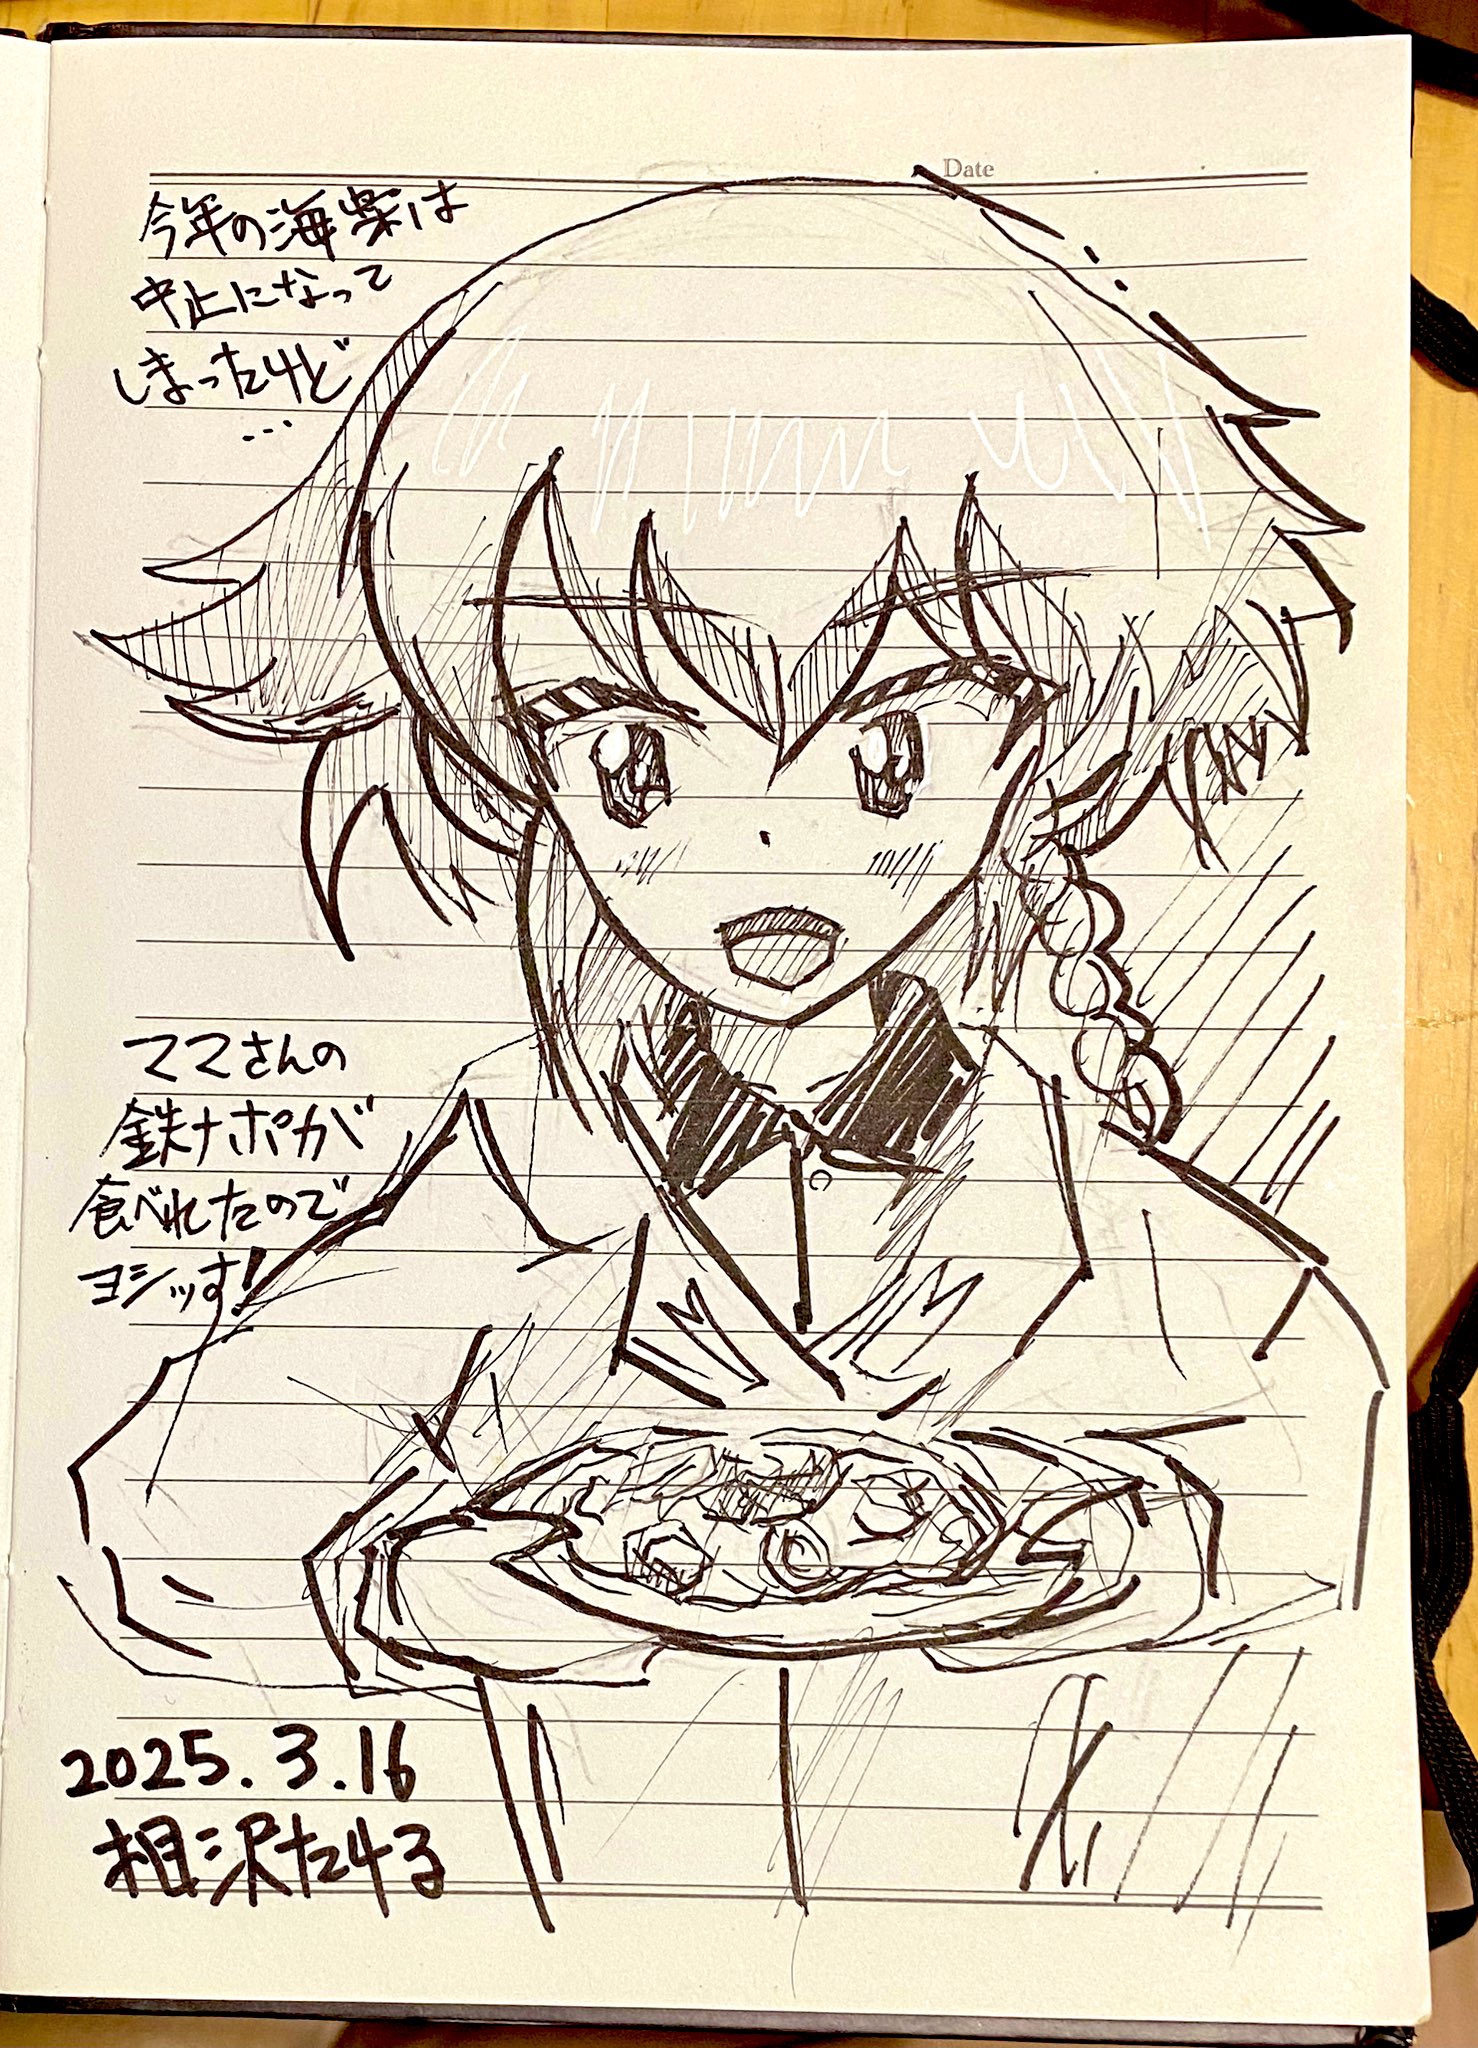 Date
今年の海楽は
中止になって
しまったけど
…
ママさんの
鉄ナポが
食べれたので
ヨシッす!
2025.3.16
相沢たける